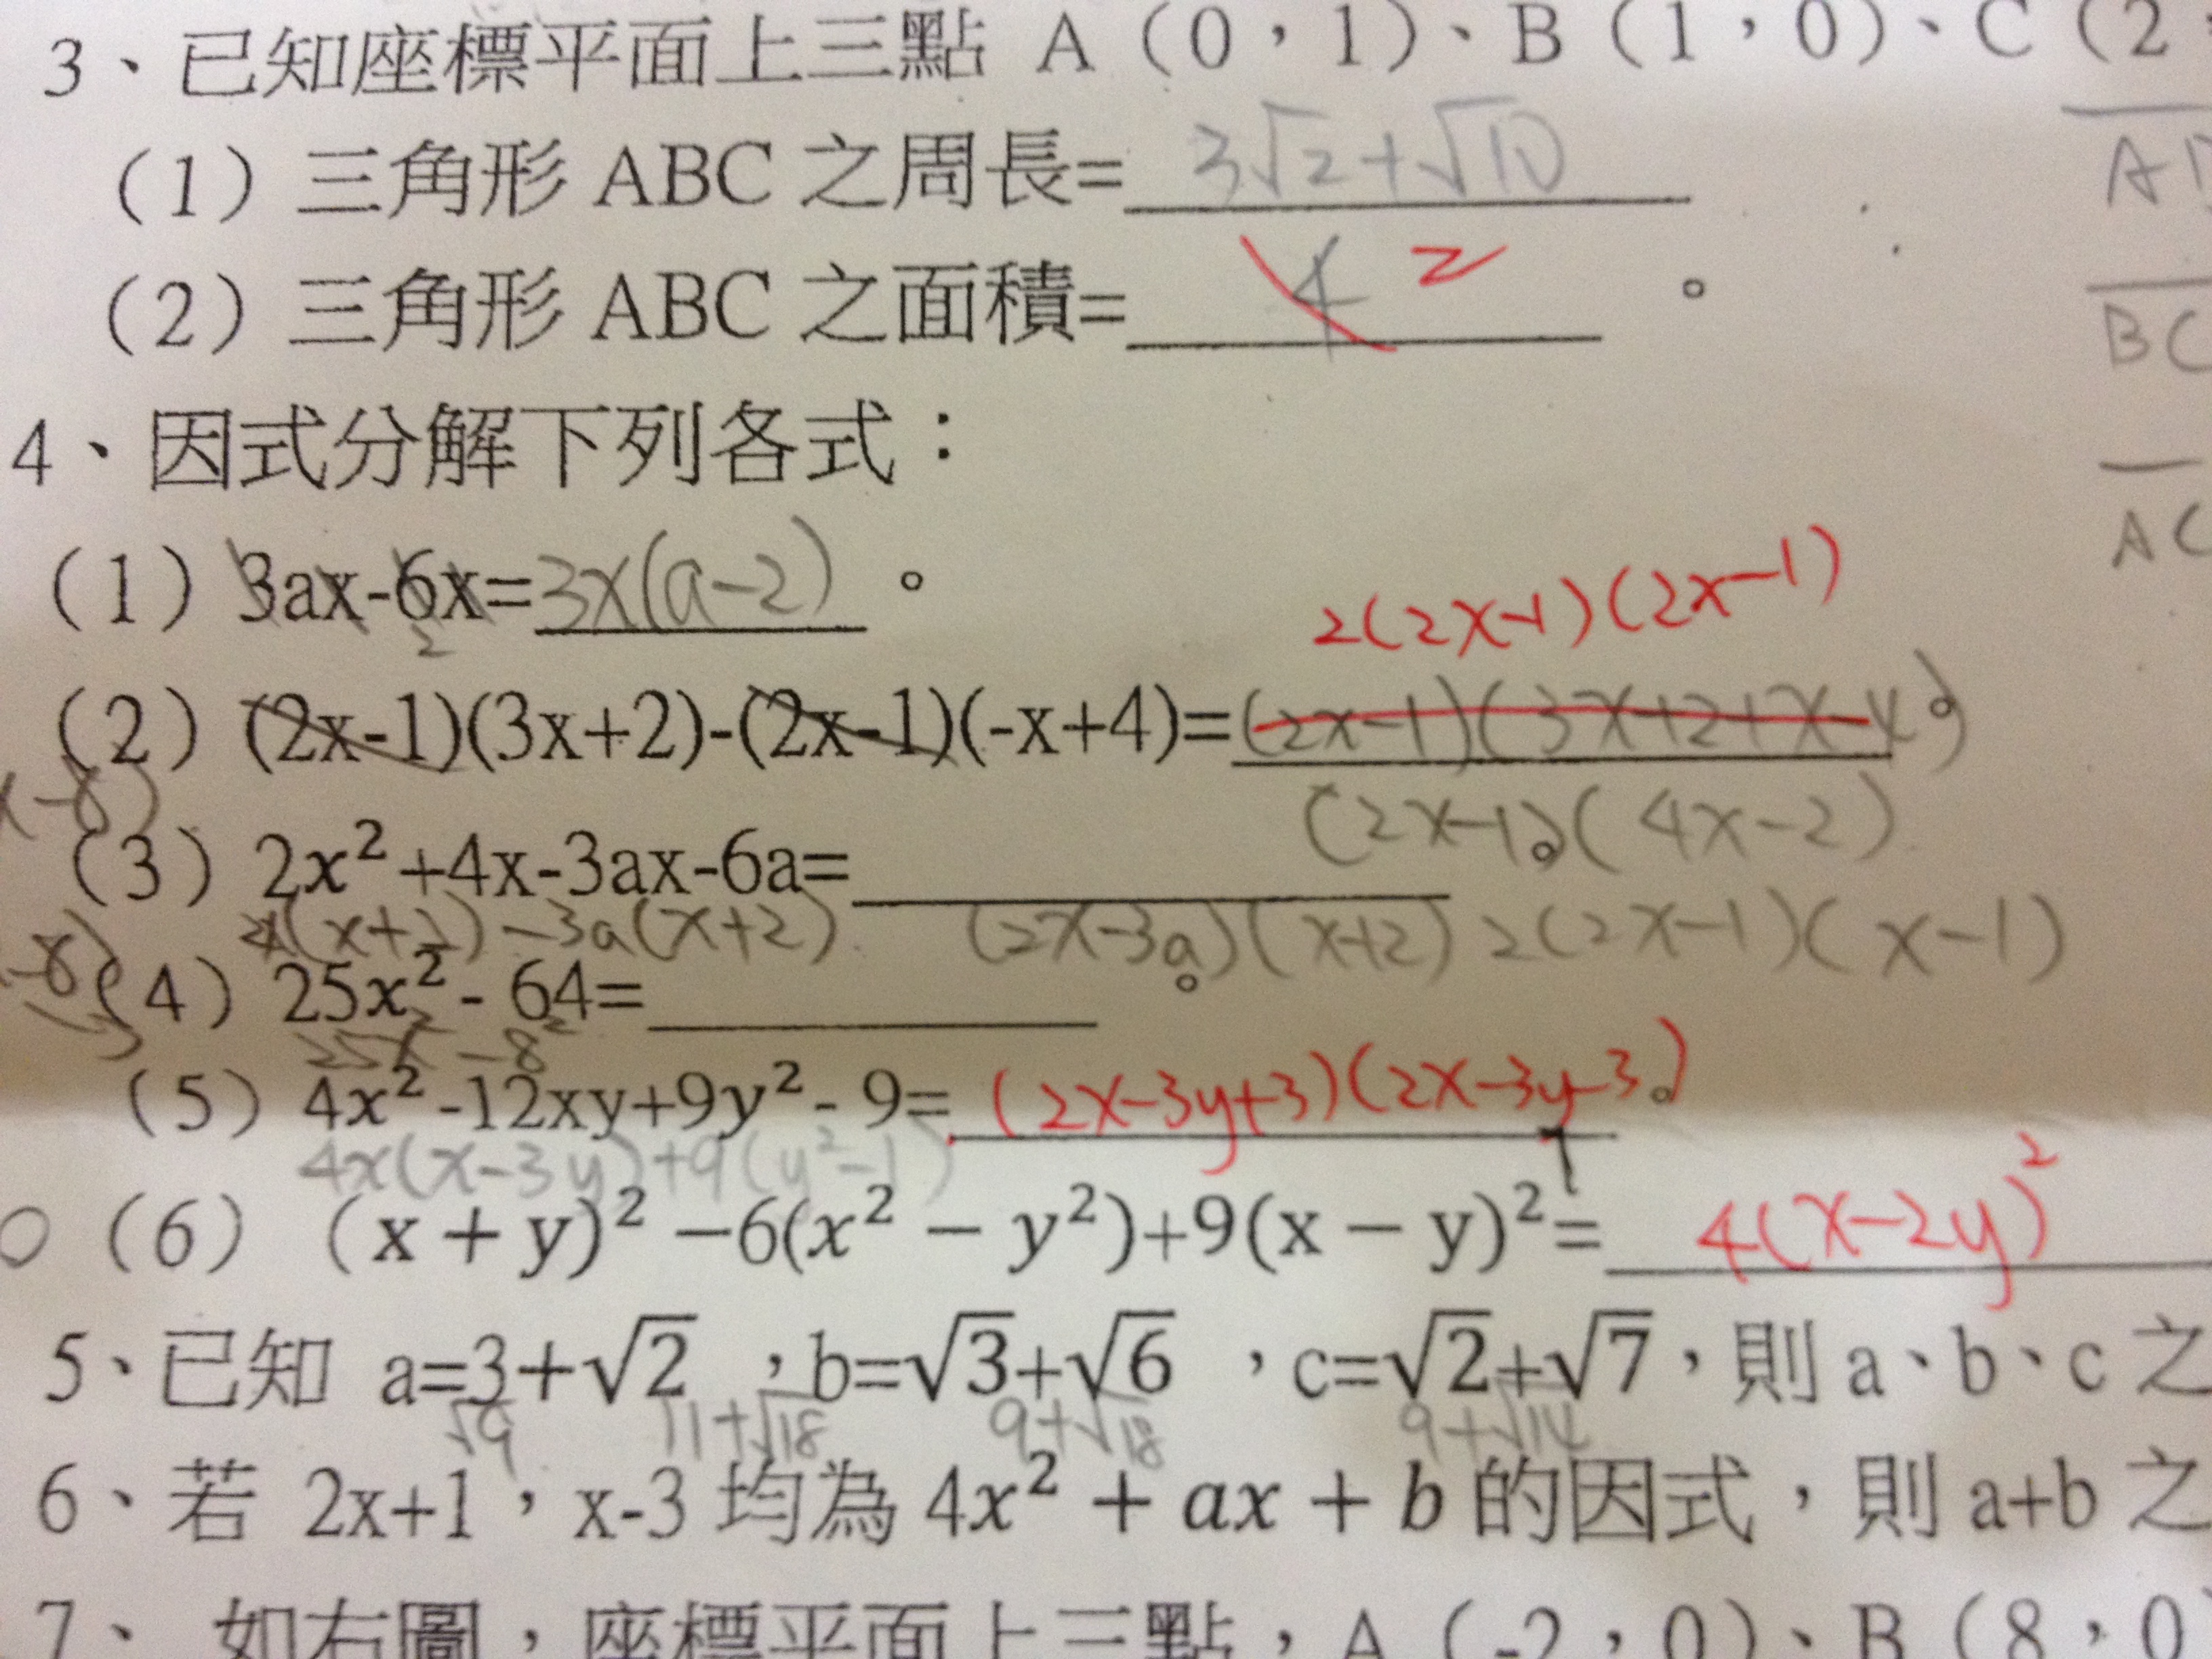 3、已知座標平面上三點 A（0，1）、B（1，0）、C（2
（1）三角形 ABC 之周長=3√2+√10
（2）三角形 ABC 之面積=4 2。
4、因式分解下列各式：
（1）3ax-6x=3x(a-2)。
2
2(2x-1)(2x-1)
（2）(2x-1)(3x+2)-(2x-1)(-x+4)=(2x-1)(3x+2+x-4)。
(2x-1)(4x-2)
（3）2x²+4x-3ax-6a=。
(x+2)-3a(x+2) (2x-3a)(x+2) 2(2x-1)(x-1)
（4）25x²- 64=。
25x²-8²
（5）4x²-12xy+9y²- 9=(2x-3y+3)(2x-3y-3)。
4x(x-3y)+9(y²-1)
（6）（x + y)² −6(x² − y²)+9(x − y)²=4(x-2y)²
5、已知 a=3+√2 ，b=√3+√6 ，c=√2+√7，則 a、b、c 之
√9 11+√18 9+√18 9+√14
6、若 2x+1，x-3 均為 4x² + ax + b 的因式，則 a+b 之
7、 如右圖，座標平面上三點，A（-2，0）、B（8，0
AC
BC